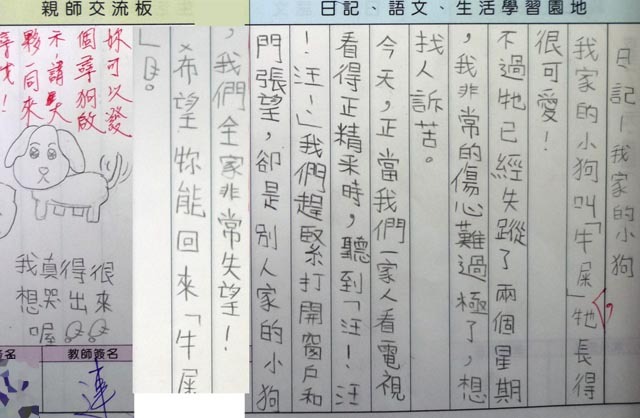 日記、語文、生活學習園地
日記—我家的小狗
我家的小狗叫「牛屎」牠長得
很可愛!
不過牠已經失蹤了兩個星期
,我非常的傷心難過極了,想
找人訴苦。
今天,正當我們一家人看電視
看得正精采時,聽到「汪!汪
!汪!」我們趕緊打開窗戶和
門張望,卻是別人家的小狗
,我們全家非常失望!
希望能回來「牛屎
」。
親師交流板
妳可以發
個尋狗啟
示請大
夥一同來
尋找!
我真得很
想哭出來
喔
教師簽名